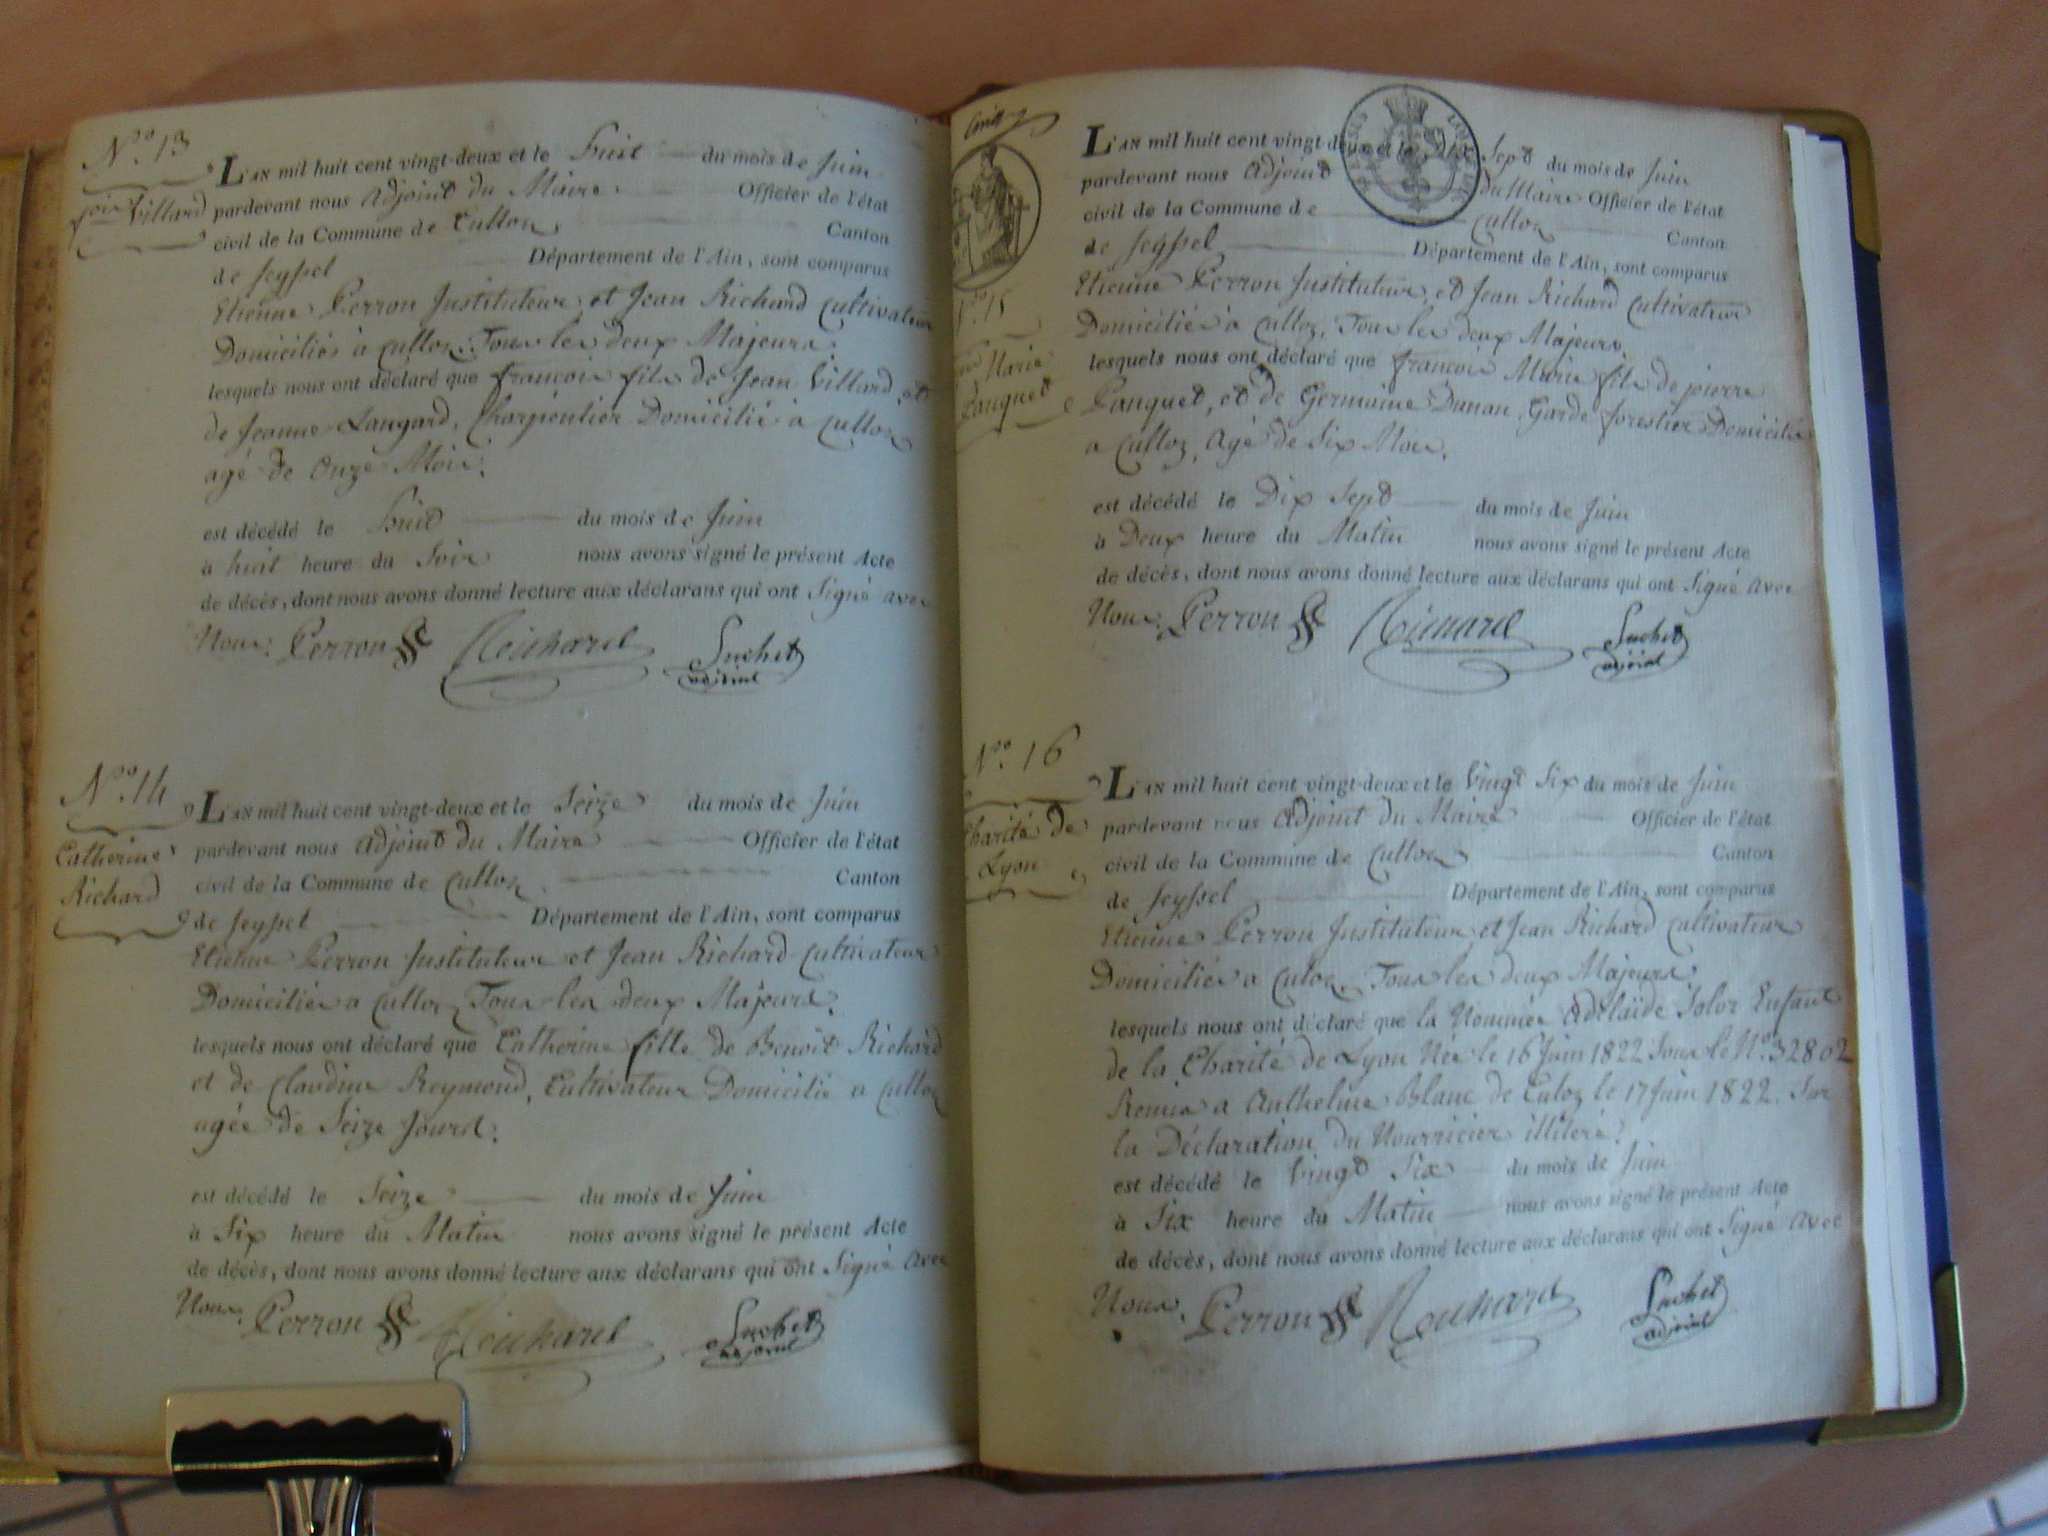 N.o 13
Villard
L'AN mil huit cent vingt-deux et le huit du mois de Juin
pardevant nous Adjoint du Maire Officier de l'état
civil de la Commune de Culloz Canton
de Seyssel Département de l'Ain, sont comparus
Etienne Perron Instituteur, et Jean Richard Cultivateur
Domiciliés à Culloz. Tous les deux Majeurs.
lesquels nous ont déclaré que francois fils de Jean Villard, et
de Jeanne Charpentier Domicilié à Culloz
agé de Onze Mois.
est décédé le huit du mois de Juin
à huit heure du Soir nous avons signé le présent Acte
de décès, dont nous avons donné lecture aux déclarans qui ont Signé avec
Nous. Perron Richard Suchet
adjoint
N.o 14
Catherine
Richard
L'AN mil huit cent vingt-deux et le Seize du mois de Juin
pardevant nous Adjoint du Maire Officier de l'état
civil de la Commune de Culloz Canton
de Seyssel Département de l'Ain, sont comparus
Etienne Perron Instituteur et Jean Richard Cultivateur
Domiciliés à Culloz Tous les deux Majeurs.
lesquels nous ont déclaré que Catherine fille de Benoit Richard
et de Claudine Reymond, Cultivateur Domicilié a Culloz
agée de Seize Jours.
est décédé le Seize du mois de Juin
à Six heure du Matin nous avons signé le présent Acte
de décès, dont nous avons donné lecture aux déclarans qui ont Signé Avec
Nous. Perron Richard Suchet
adjoint
L'AN mil huit cent vingt-deux et le Dix Sept du mois de Juin
pardevant nous Adjoint du Maire Officier de l'état
civil de la Commune de Culloz Canton
de Seyssel Département de l'Ain, sont comparus
N.o 15
Marie
Panquet
Etienne Perron Instituteur, et Jean Richard Cultivateur
Domiciliés à Culloz, Tous les deux Majeurs.
lesquels nous ont déclaré que francois Marie fils de pierre
Panquet, et de Germaine Dunan, Garde forestier Domicilié
a Culloz, Agé de Six Mois.
est décédé le Dix Sept du mois de Juin
à Deux heure du Matin nous avons signé le présent Acte
de décès, dont nous avons donné lecture aux déclarans qui ont Signé avec
Nous. Perron Richard Suchet
adjoint
N.o 16
Charité de
Lyon
L'AN mil huit cent vingt-deux et le Vingt Six du mois de Juin
pardevant nous Adjoint du Maire Officier de l'état
civil de la Commune de Culloz Canton
de Seyssel Département de l'Ain, sont comparus
Etienne Perron Instituteur et Jean Richard Cultivateur
Domiciliés a Culoz. Tous les deux Majeurs.
lesquels nous ont déclaré que la Nommée Adelaïde Enfant
de la Charité de Lyon Née le 16 Juin 1822 Sous le No. 32802
Remis a Anthelme Blanc de Culoz le 17 Juin 1822. Sur
la Déclaration du Nourricier illiteré.
est décédé le Vingt Six du mois de Juin
à Six heure du Matin nous avons signé le présent Acte
de décès, dont nous avons donné lecture aux déclarans qui ont Signé Avec
Nous. Perron Richard Suchet
adjoint